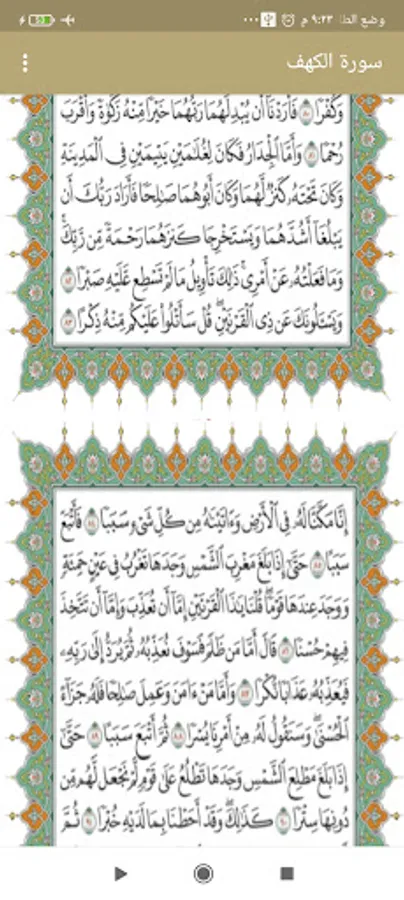 وضع الط... ٩:٢٣ م
سورة الكهف
وَكُفْرًا ۝٨٠ فَأَرَدْنَا أَن يُبْدِلَهُمَا رَبُّهُمَا خَيْرًا مِّنْهُ زَكَوٰةً وَأَقْرَبَ
رُحْمًا ۝٨١ وَأَمَّا الْجِدَارُ فَكَانَ لِغُلَٰمَيْنِ يَتِيمَيْنِ فِي الْمَدِينَةِ
وَكَانَ تَحْتَهُۥ كَنزٌ لَّهُمَا وَكَانَ أَبُوهُمَا صَٰلِحًا فَأَرَادَ رَبُّكَ أَن
يَبْلُغَآ أَشُدَّهُمَا وَيَسْتَخْرِجَا كَنزَهُمَا رَحْمَةً مِّن رَّبِّكَ ۚ
وَمَا فَعَلْتُهُۥ عَنْ أَمْرِي ۚ ذَٰلِكَ تَأْوِيلُ مَا لَمْ تَسْطِع عَّلَيْهِ صَبْرًا ۝٨٢
وَيَسْـَٔلُونَكَ عَن ذِي الْقَرْنَيْنِ ۖ قُلْ سَأَتْلُوا۟ عَلَيْكُم مِّنْهُ ذِكْرًا ۝٨٣
إِنَّا مَكَّنَّا لَهُۥ فِي الْأَرْضِ وَءَاتَيْنَٰهُ مِن كُلِّ شَيْءٍ سَبَبًا ۝٨٤ فَأَتْبَعَ
سَبَبًا ۝٨٥ حَتَّىٰٓ إِذَا بَلَغَ مَغْرِبَ الشَّمْسِ وَجَدَهَا تَغْرُبُ فِي عَيْنٍ حَمِئَةٍ
وَوَجَدَ عِندَهَا قَوْمًا ۗ قُلْنَا يَٰذَا الْقَرْنَيْنِ إِمَّآ أَن تُعَذِّبَ وَإِمَّآ أَن تَتَّخِذَ
فِيهِمْ حُسْنًا ۝٨٦ قَالَ أَمَّا مَن ظَلَمَ فَسَوْفَ نُعَذِّبُهُۥ ثُمَّ يُرَدُّ إِلَىٰ رَبِّهِۦ
فَيُعَذِّبُهُۥ عَذَابًا نُّكْرًا ۝٨٧ وَأَمَّا مَنْ ءَامَنَ وَعَمِلَ صَٰلِحًا فَلَهُۥ جَزَآءً
الْحُسْنَىٰ ۖ وَسَنَقُولُ لَهُۥ مِنْ أَمْرِنَا يُسْرًا ۝٨٨ ثُمَّ أَتْبَعَ سَبَبًا ۝٨٩ حَتَّىٰٓ
إِذَا بَلَغَ مَطْلِعَ الشَّمْسِ وَجَدَهَا تَطْلُعُ عَلَىٰ قَوْمٍ لَّمْ نَجْعَل لَّهُم مِّن
دُونِهَا سِتْرًا ۝٩٠ كَذَٰلِكَ وَقَدْ أَحَطْنَا بِمَا لَدَيْهِ خُبْرًا ۝٩١ ثُمَّ